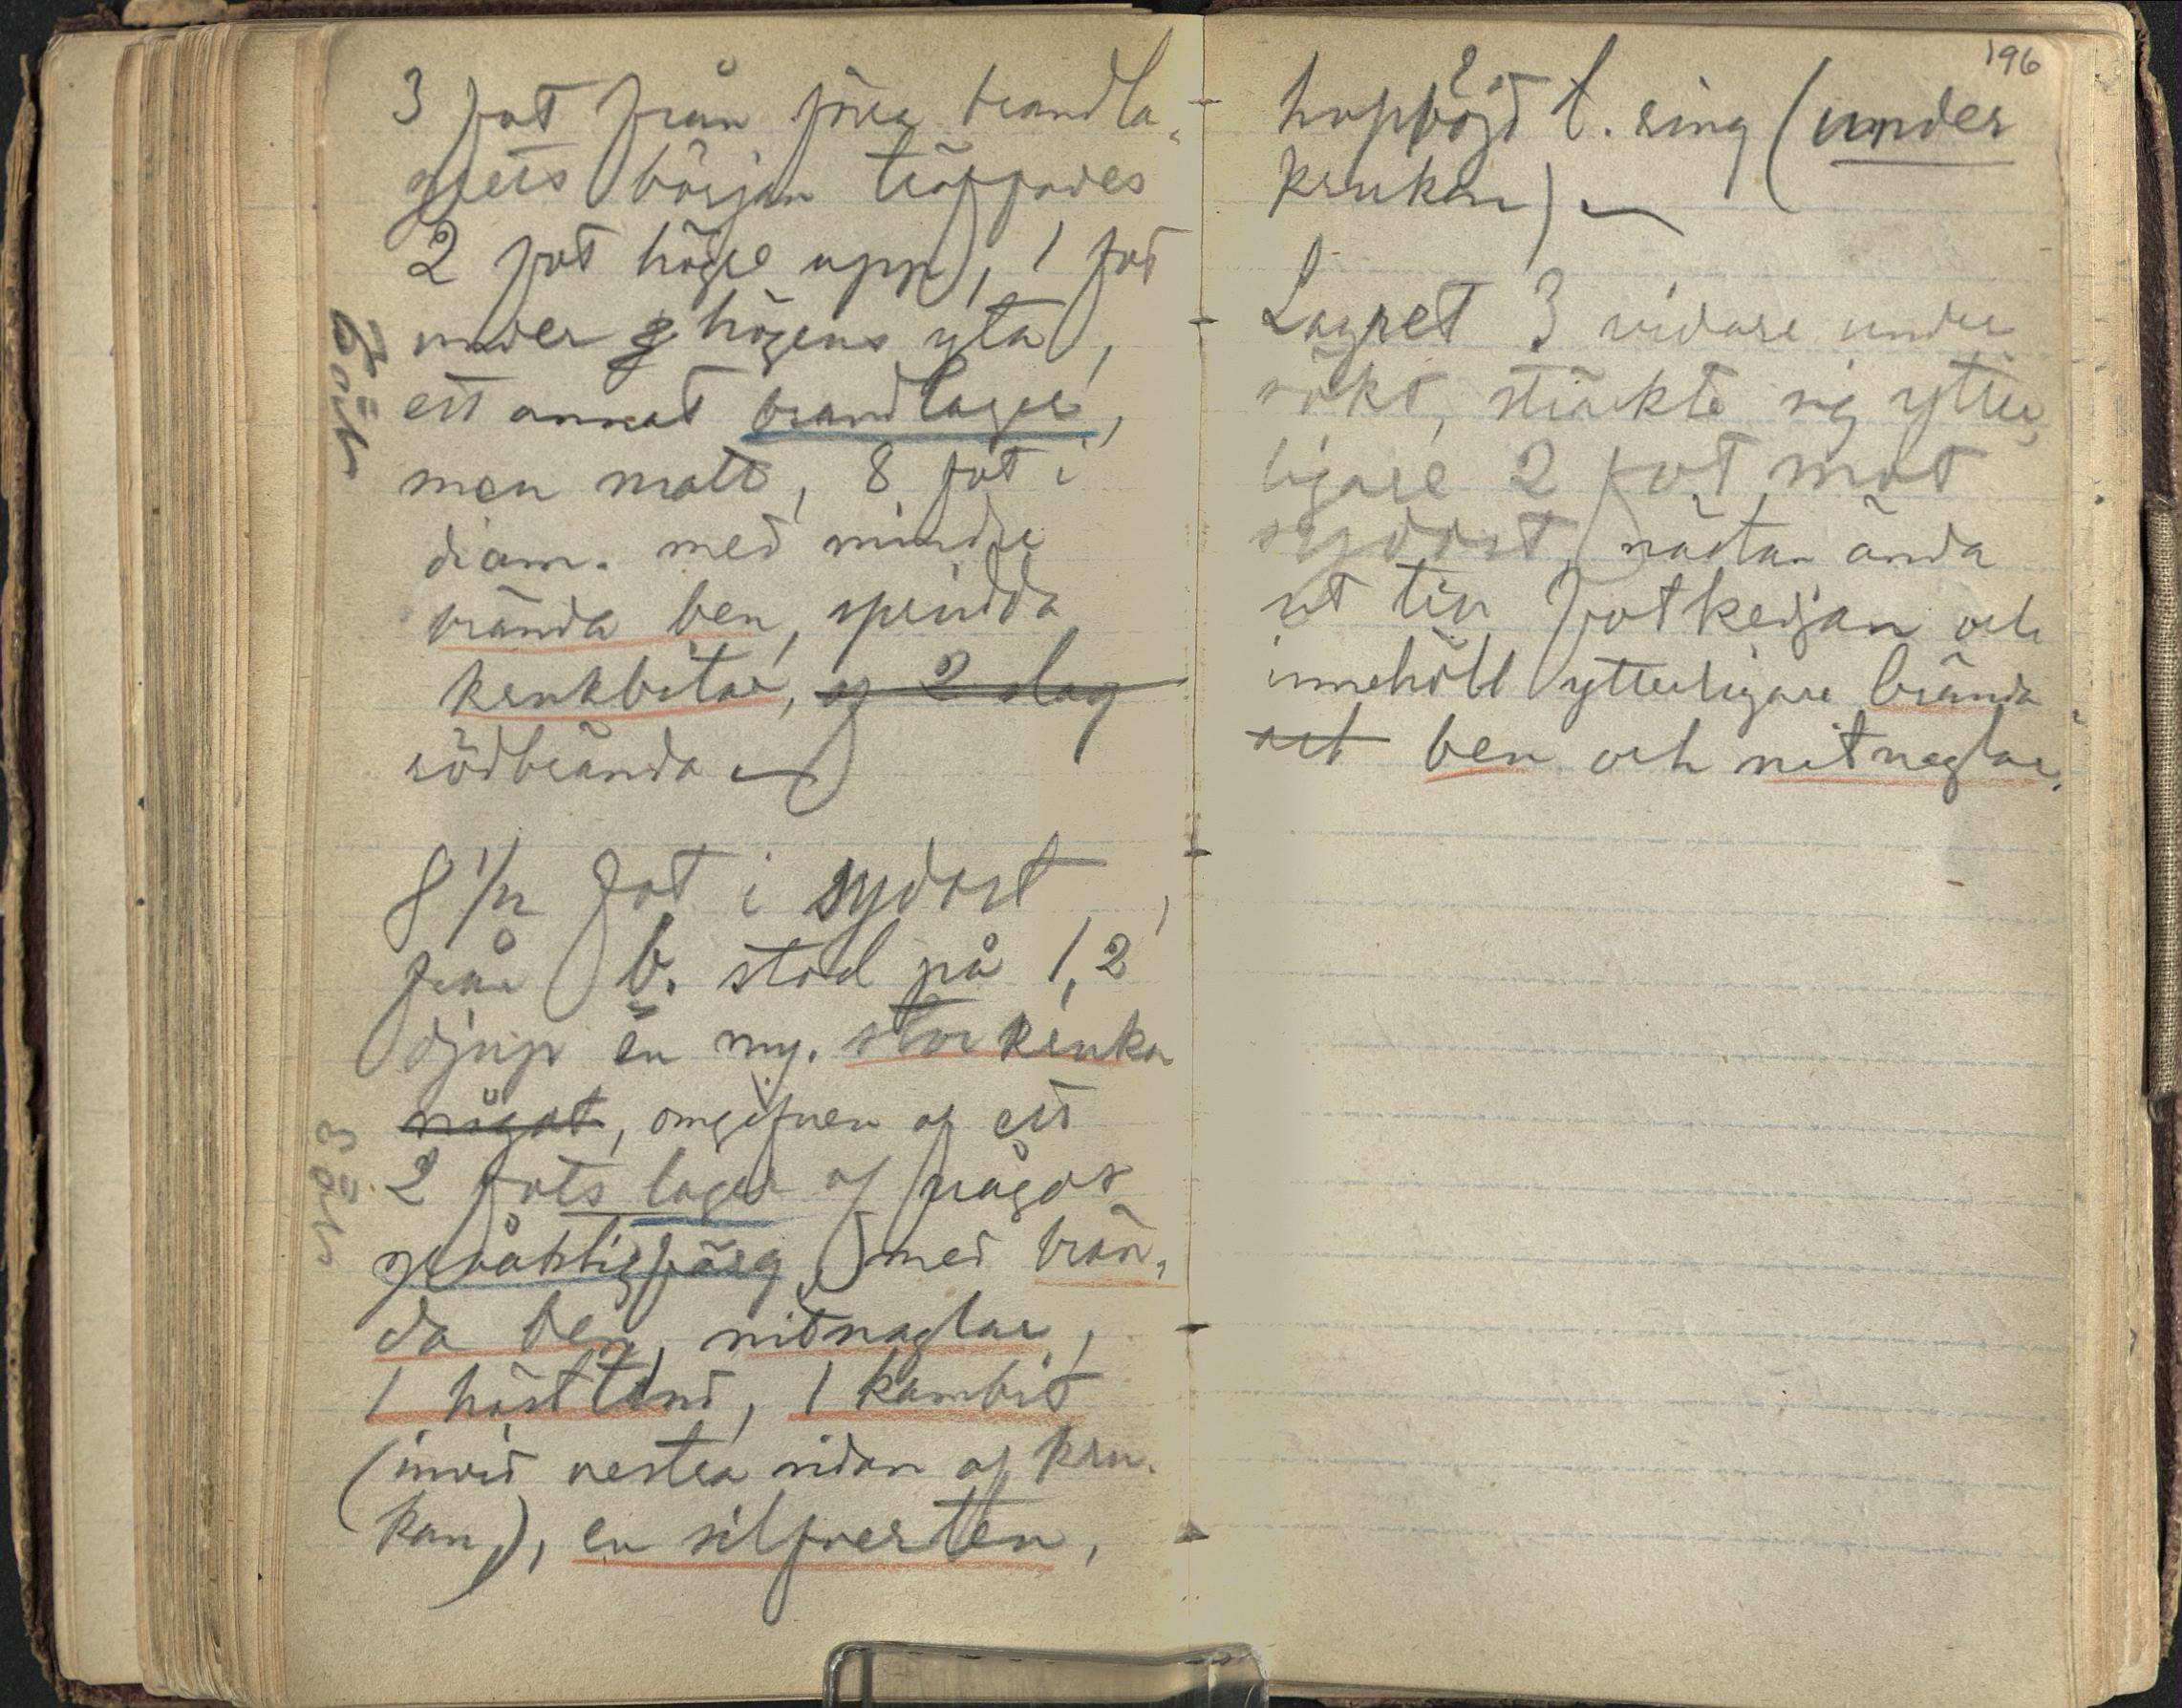 3 fot från förra brandla-
grets början träffades
2 fot högre upp, 1 fot
under högens yta,
ett annat brandlager,
men matt, 8 fot i
diam. med mindre
brända ben, spridda
krukbitar, af 2 slag
rödbrända
8 1/2 fot i sydost
från b. stod på 1,2
djup en my. stor kruka
något, omgifven af ett
2 fots lager af något
med brän-
da ben, nitnaglar,
1 hästtand, 1 kambit
(invid vestra sidan af kru-
kan), en silfverten,
196
hopböjd t. ring (under
krukan)
Lagret 3 vidare under
sökt, sträkte sig ytter-
ligare 2 fot mot
sydost, nästan ända
ut till fotkedjan och
innehöll ytterligare brända
ben och nitnaglar.